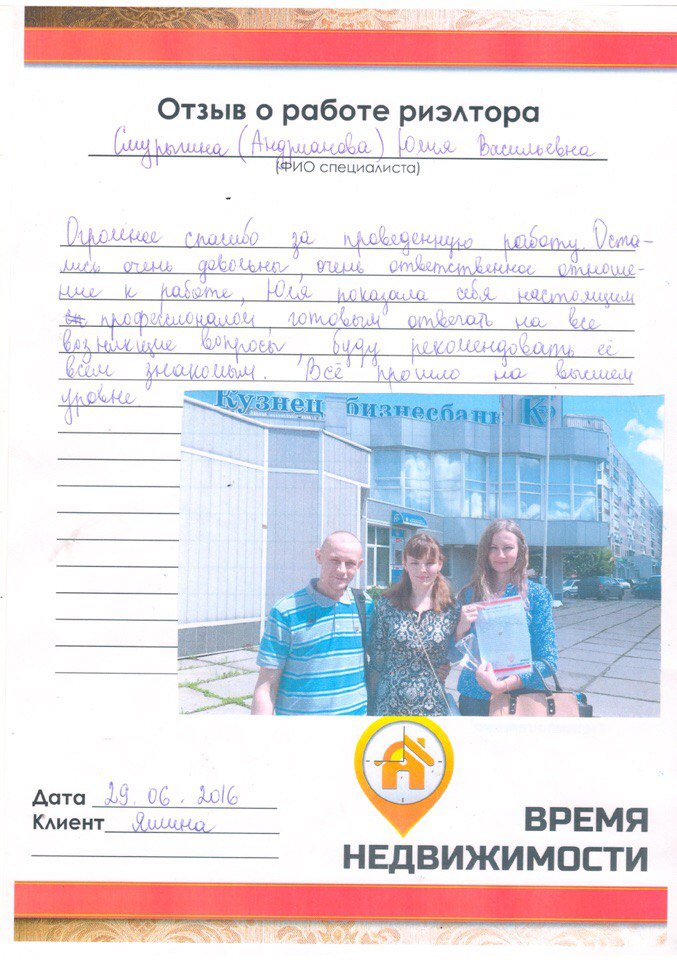 Отзыв о работе риэлтора
Смурыгина (Андрианова) Юлия Васильевна
(ФИО специалиста)
Огромное спасибо за проведенную работу. Оста-
лись очень довольны, очень ответственное отноше-
ние к работе, Юля показала себя настоящим
профессионалом, готовым отвечать на все
возникющие вопросы, буду рекомендовать её
всем знакомым. Всё прошло на высшем
уровне
Кузнецкбизнесбанк
Дата 29.06.2016
Клиент Яшина
ВРЕМЯ
НЕДВИЖИМОСТИ